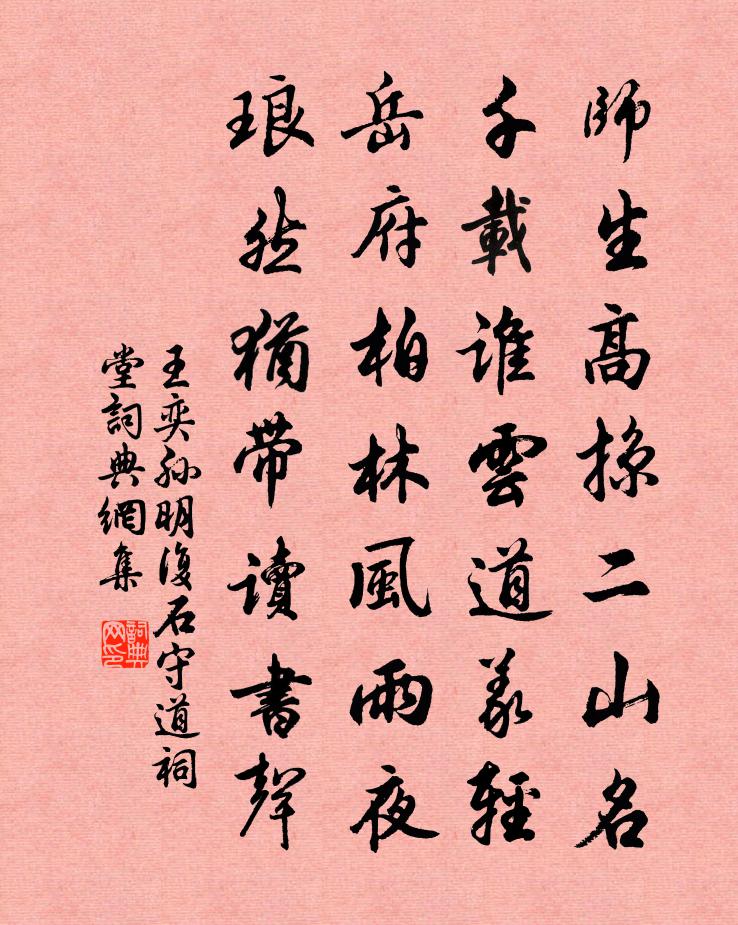 師生高掠二山名
千載誰雲道義輕
岳府柏林風雨夜
琅然猶帶讀書聲
王奕孙明復石守道祠
堂詞典網集
詞典网印